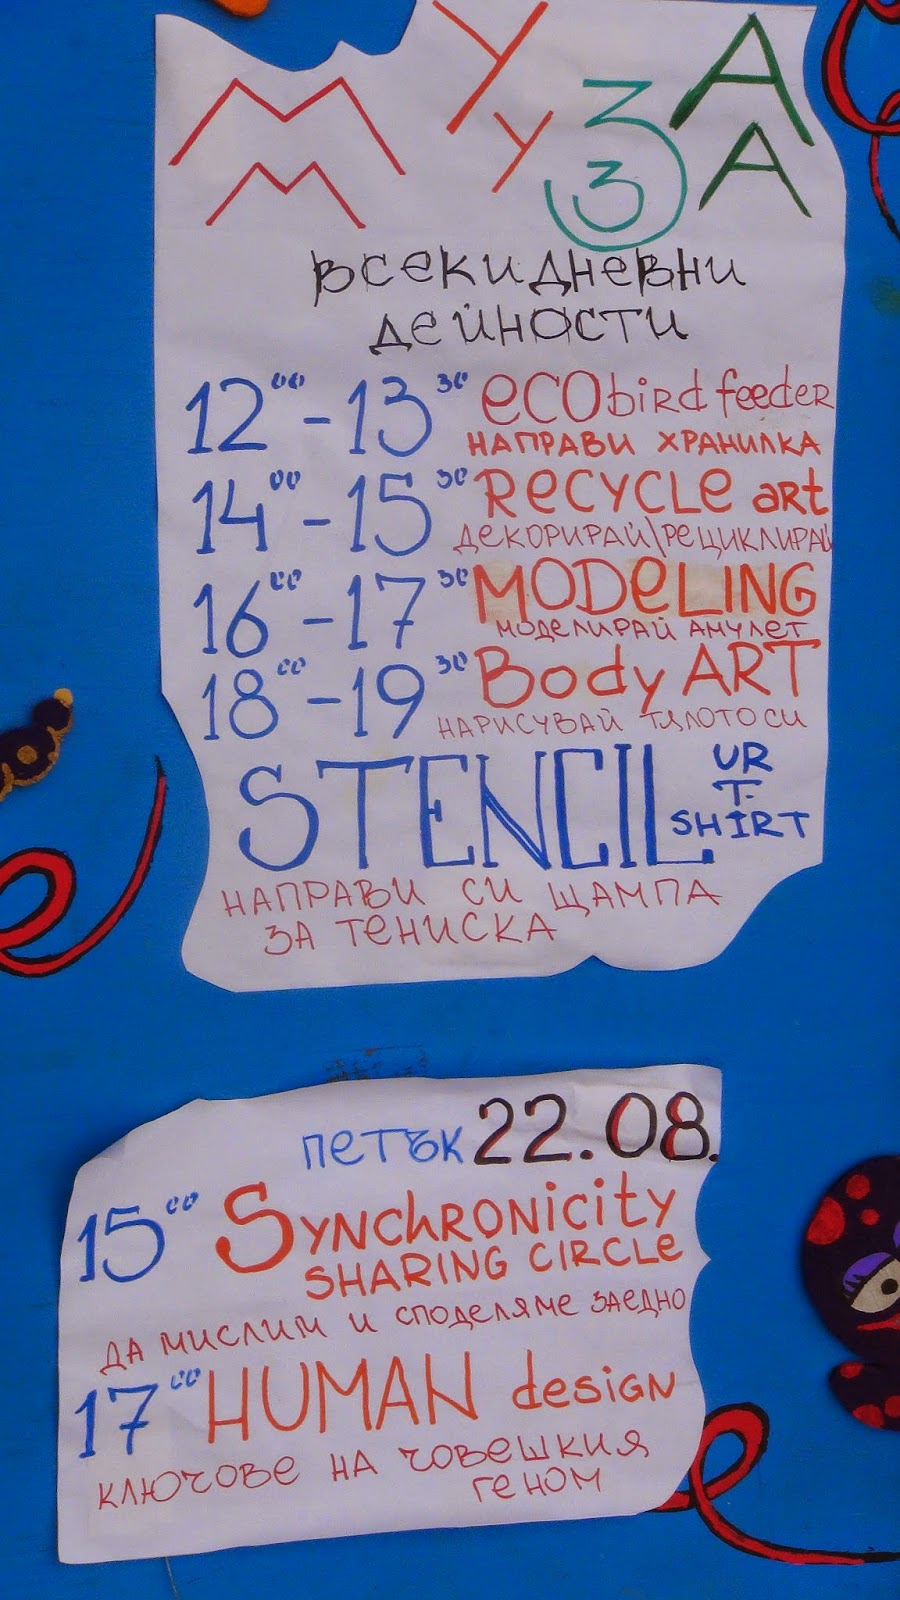 МУЗА
МУЗА
всекидневни
дейности
12⁰⁰-13³⁰ eCO bird feeder
НАПРАВИ ХРАНИЛКА
14⁰⁰-15³⁰ ReCYCLe art
ДЕКОРИРАЙ\РЕЦИКЛИРАЙ
16⁰⁰-17³⁰ MODeLING
МОДЕЛИРАЙ АМУЛЕТ
18⁰⁰-19³⁰ Body ART
НАРИСУВАЙ ТЯЛОТО СИ
STENCIL UR
T-
SHIRT
НАПРАВИ СИ ЩАМПА
ЗА ТЕНИСКА
петък 22.08.
15⁰⁰ SYNChRONicity
SHARING CIRCLe
ДА МИСЛИМ И СПОДЕЛЯМЕ ЗАЕДНО
17⁰⁰ HUMAN design
КЛЮЧОВЕ НА ЧОВЕШКИЯ
ГЕНОМ